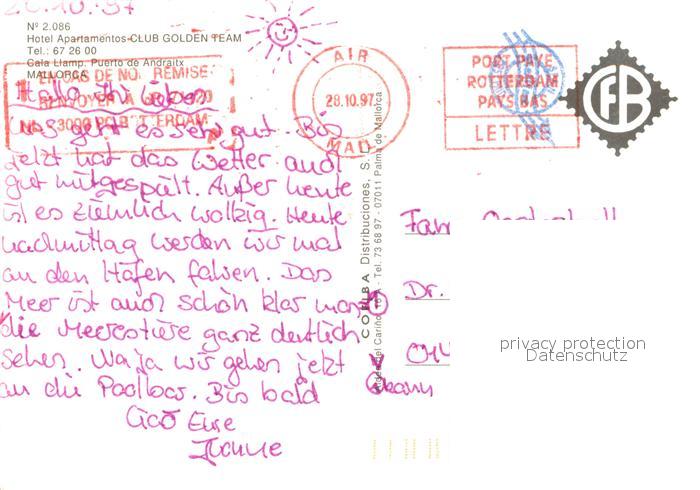 20.10.97
Nº 2.086
Hotel Apartamentos CLUB GOLDEN TEAM
Tel.: 67 26 00
Cala Llamp. Puerto de Andraitx
MALLORCA
EN CAS DE NON REMISE
RENVOYER A
3000 ROTTERDAM
AIR
28.10.97
MAIL
PORT PAYE
ROTTERDAM
PAYS BAS
LETTRE
CFB
Hallo Ihr Lieben
uns geht es sehr gut. Bis
jetzt hat das Wetter auch
gut mitgespielt. Außer heute
ist es ziemlich wolkig. Heute
nachmittag werden wir mal
an den Hafen fahren. Das
Meer ist auch schön klar man
die Meerestiere ganz deutlich
sehen. Na ja wir gehen jetzt
an die Poolbar. Bis bald
Ciao Eure
Distribuciones, S.
Tel. 73 68 97 - 07011 Palma de Mallorca
Fam.
Dr.
privacy protection
Datenschutz